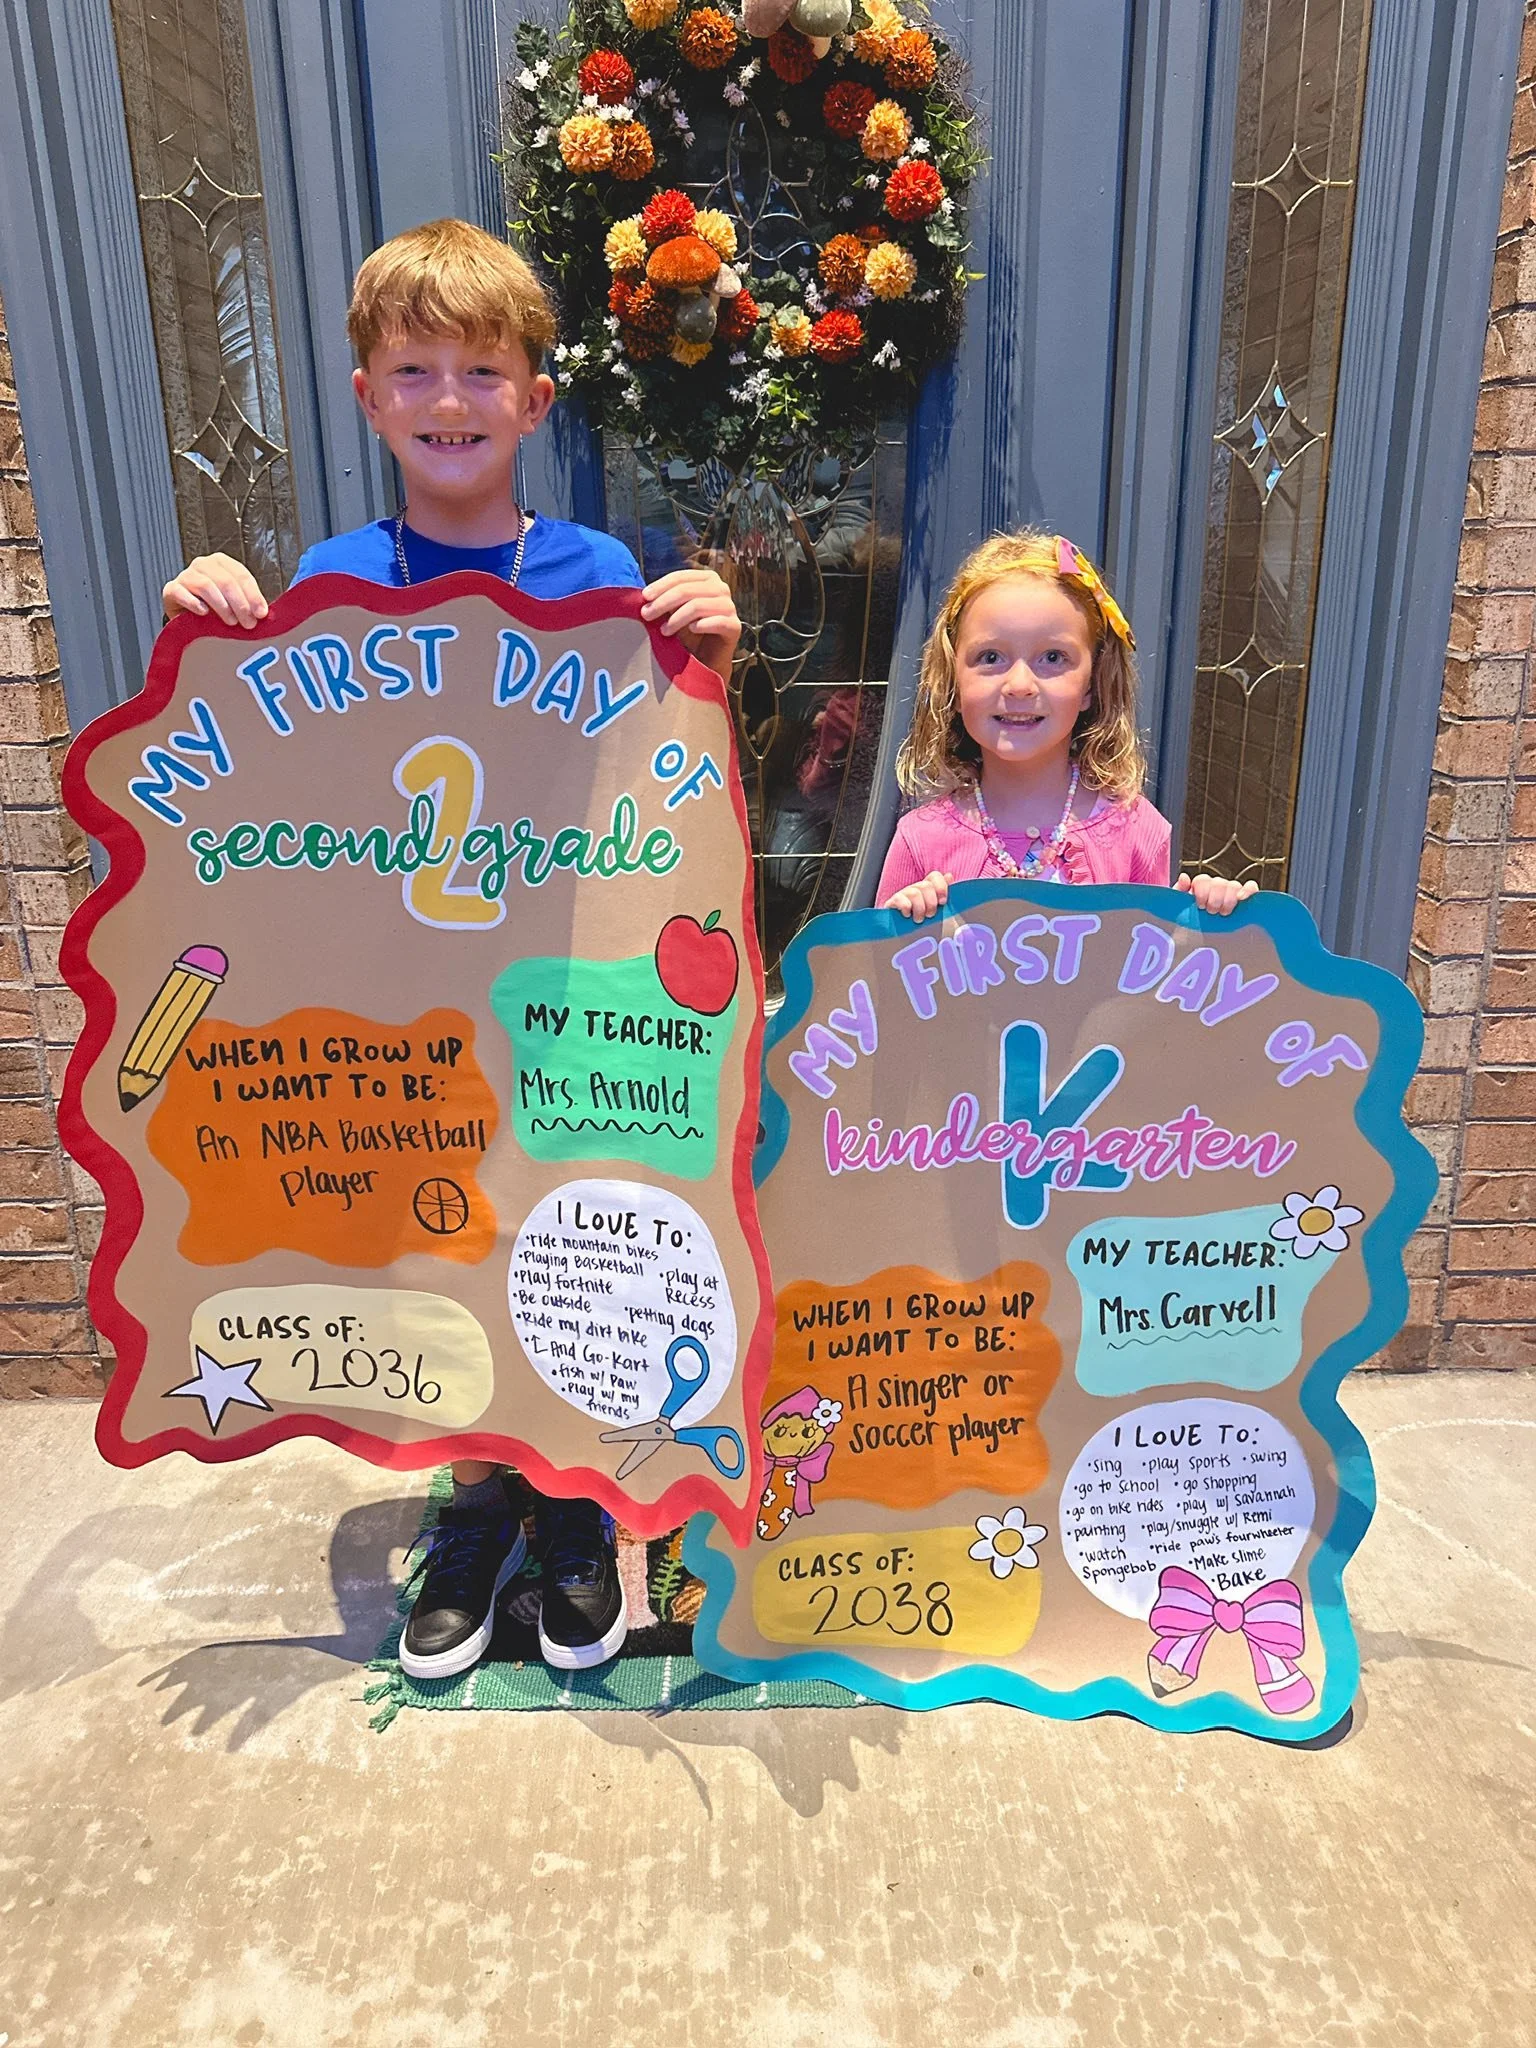 MY FIRST DAY OF
2
second grade
MY TEACHER:
Mrs. Arnold
WHEN I GROW UP
I WANT TO BE:
An NBA Basketball
player
I LOVE TO:
•ride mountain bikes
•Playing Basketball
•Play fortnite
•Play at
Recess
•Be outside
•petting dogs
•Ride my dirt bike
And Go-Kart
•fish w/ Paw
•Play w/ my
friends
CLASS OF:
2036
MY FIRST DAY OF
K
kindergarten
MY TEACHER:
Mrs. Carvell
WHEN I GROW UP
I WANT TO BE:
A singer or
soccer player
I LOVE TO:
•sing •play sports •swing
•go to school •go shopping
•go on bike rides •play w/ Savannah
•painting •play/snuggle w/ Remi
•watch
Spongebob
•ride paw's fourwheeler
•Make slime
•Bake
CLASS OF:
2038